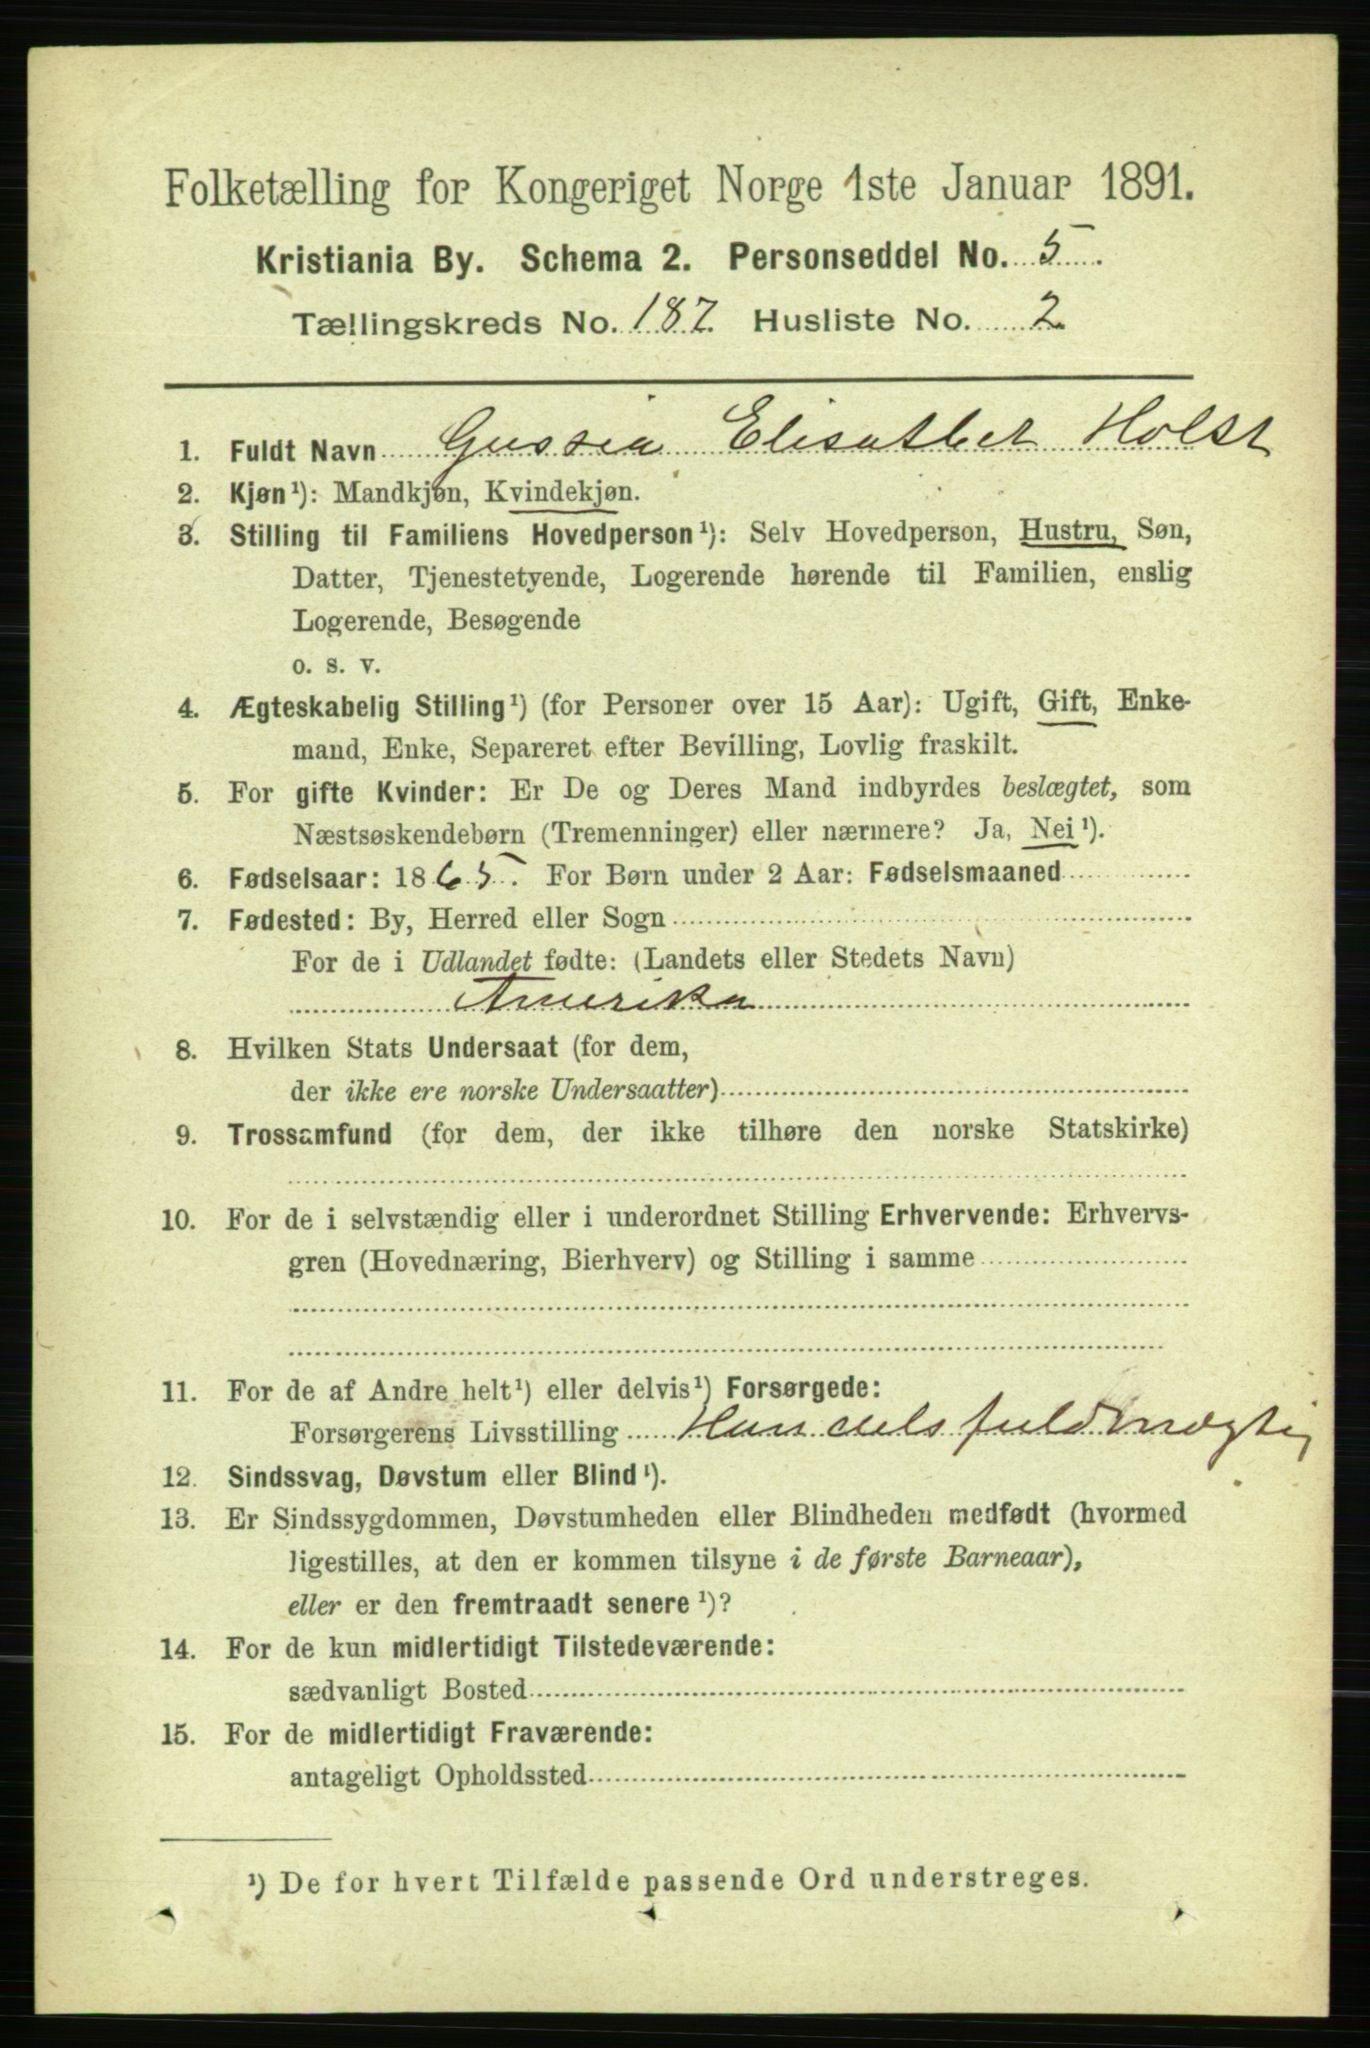 Folketælling for Kongeriget Norge 1ste Januar 1891.
Kristiania By. Schema 2. Personseddel No. 5.
Tællingskreds No. 187. Husliste No. 2.
1. Fuldt Navn Gussia Elisabhet Holst
2. Kjøn¹): Mandkjøn, Kvindekjøn.
3. Stilling til Familiens Hovedperson¹): Selv Hovedperson, Hustru, Søn,
Datter, Tjenestetyende, Logerende hørende til Familien, enslig
Logerende, Besøgende
o. s. v.
4. Ægteskabelig Stilling¹) (for Personer over 15 Aar): Ugift, Gift, Enke-
mand, Enke, Separeret efter Bevilling, Lovlig fraskilt.
5. For gifte Kvinder: Er De og Deres Mand indbyrdes beslægtet, som
Næstsøskendebørn (Tremenninger) eller nærmere? Ja, Nei¹).
6. Fødselsaar: 1865. For Børn under 2 Aar: Fødselsmaaned
7. Fødested: By, Herred eller Sogn
For de i Udlandet fødte: (Landets eller Stedets Navn)
Amerika
8. Hvilken Stats Undersaat (for dem,
der ikke ere norske Undersaatter)
9. Trossamfund (for dem, der ikke tilhøre den norske Statskirke)
10. For de i selvstændig eller i underordnet Stilling Erhvervende: Erhvervs-
gren (Hovednæring, Bierhverv) og Stilling i samme
11. For de af Andre helt¹) eller delvis¹) Forsørgede:
Forsørgerens Livsstilling Handelsfuldmægtig
12. Sindssvag, Døvstum eller Blind¹).
13. Er Sindssygdommen, Døvstumheden eller Blindheden medfødt (hvormed
ligestilles, at den er kommen tilsyne i de første Barneaar),
eller er den fremtraadt senere¹)?
14. For de kun midlertidigt Tilstedeværende:
sædvanligt Bosted
15. For de midlertidigt Fraværende:
antageligt Opholdssted
¹) De for hvert Tilfælde passende Ord understreges.